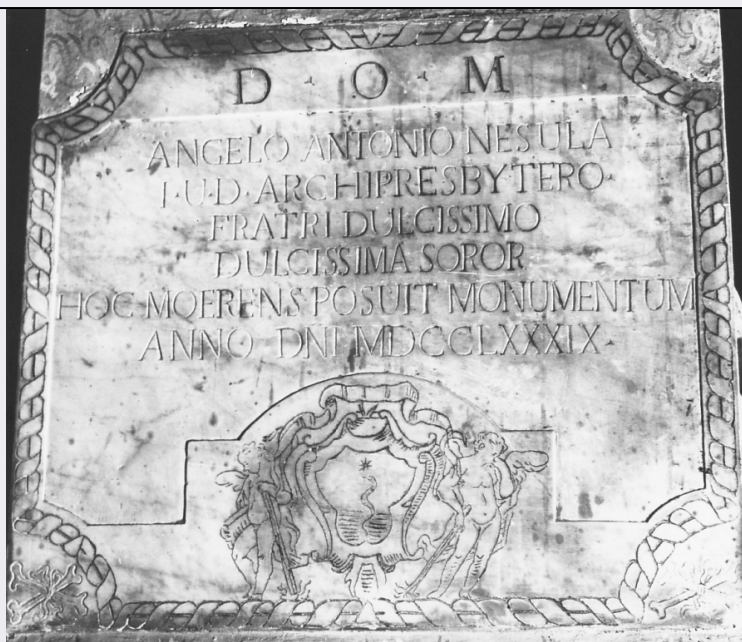 D · O · M
ANGELO ANTONIO NESULA
I·U·D·ARCHIPRESBYTERO·
FRATRI DULCISSIMO
DULCISSIMA SOROR
HOC MOERENS POSUIT MONUMENTUM
ANNO DNI MDCCLXXXIX·